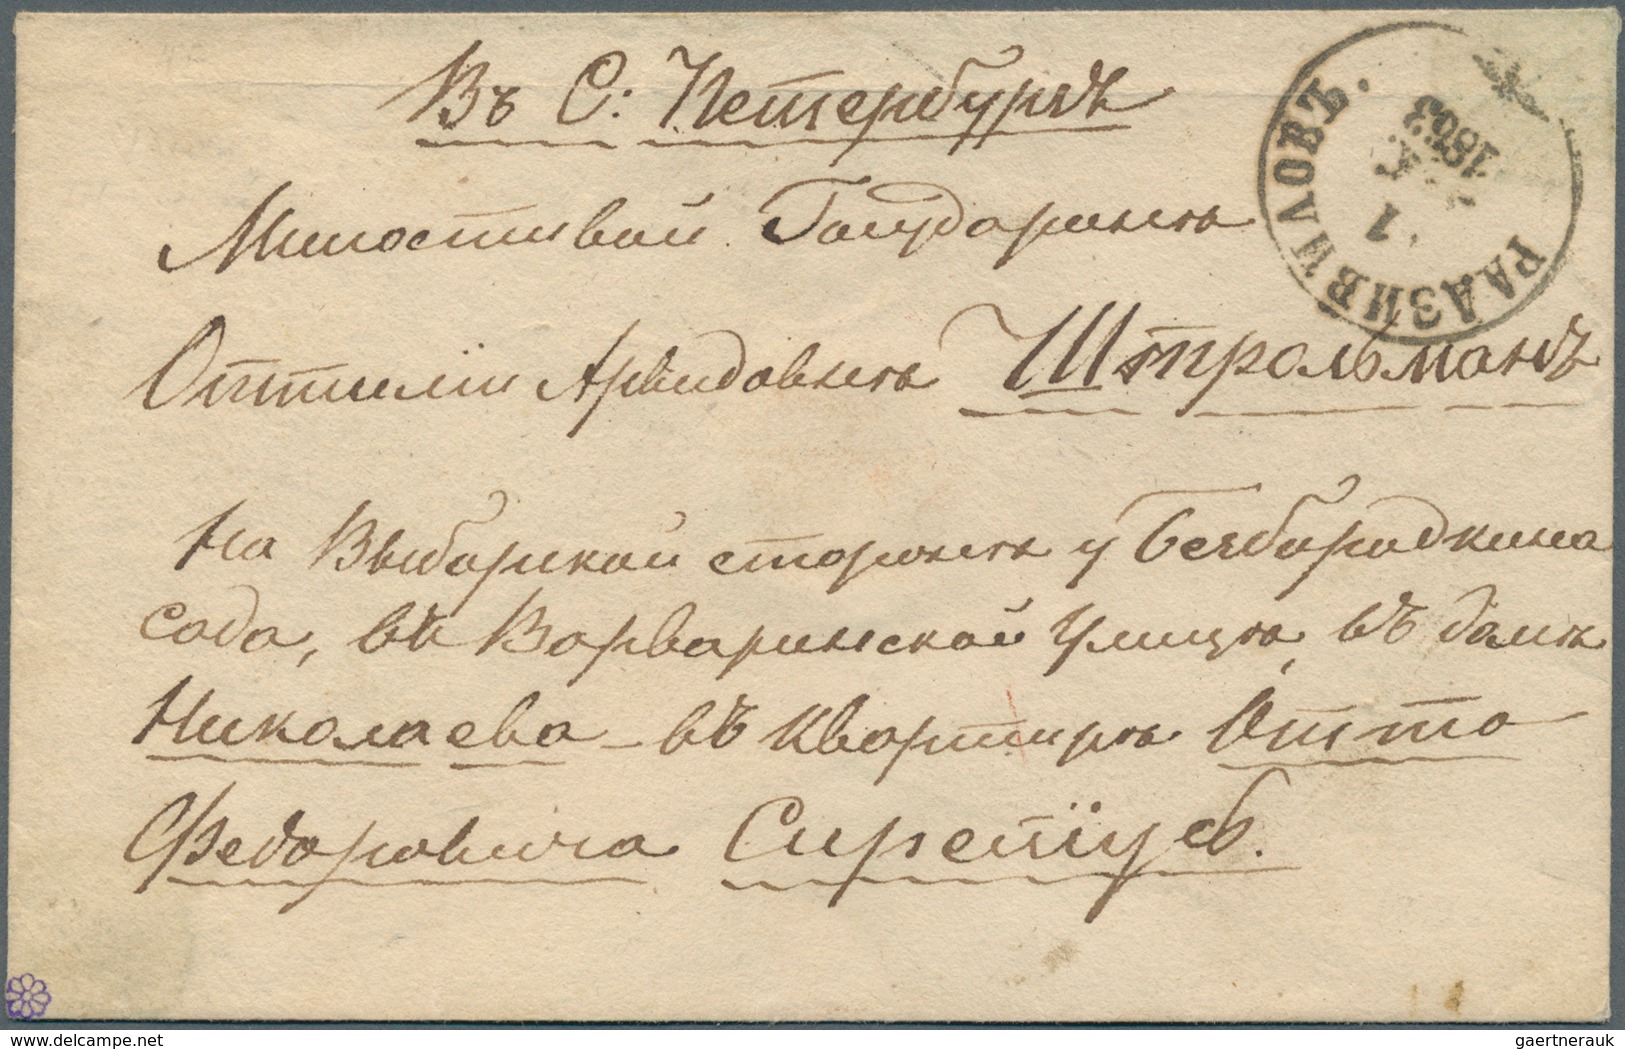 Въ С: Петербургѣ
Милостивой Государынѣ
Оттиліи Арвидовнѣ Штрольманъ
На Выборской сторонѣ у Безбородкина
сада, въ Варваринской Улицѣ, въ домѣ
Николаева – въ квартирѣ Отто
Федоровича
РАДЗИВИЛОВЪ.
1
1863
www.delcampe.net
gaertnerauk